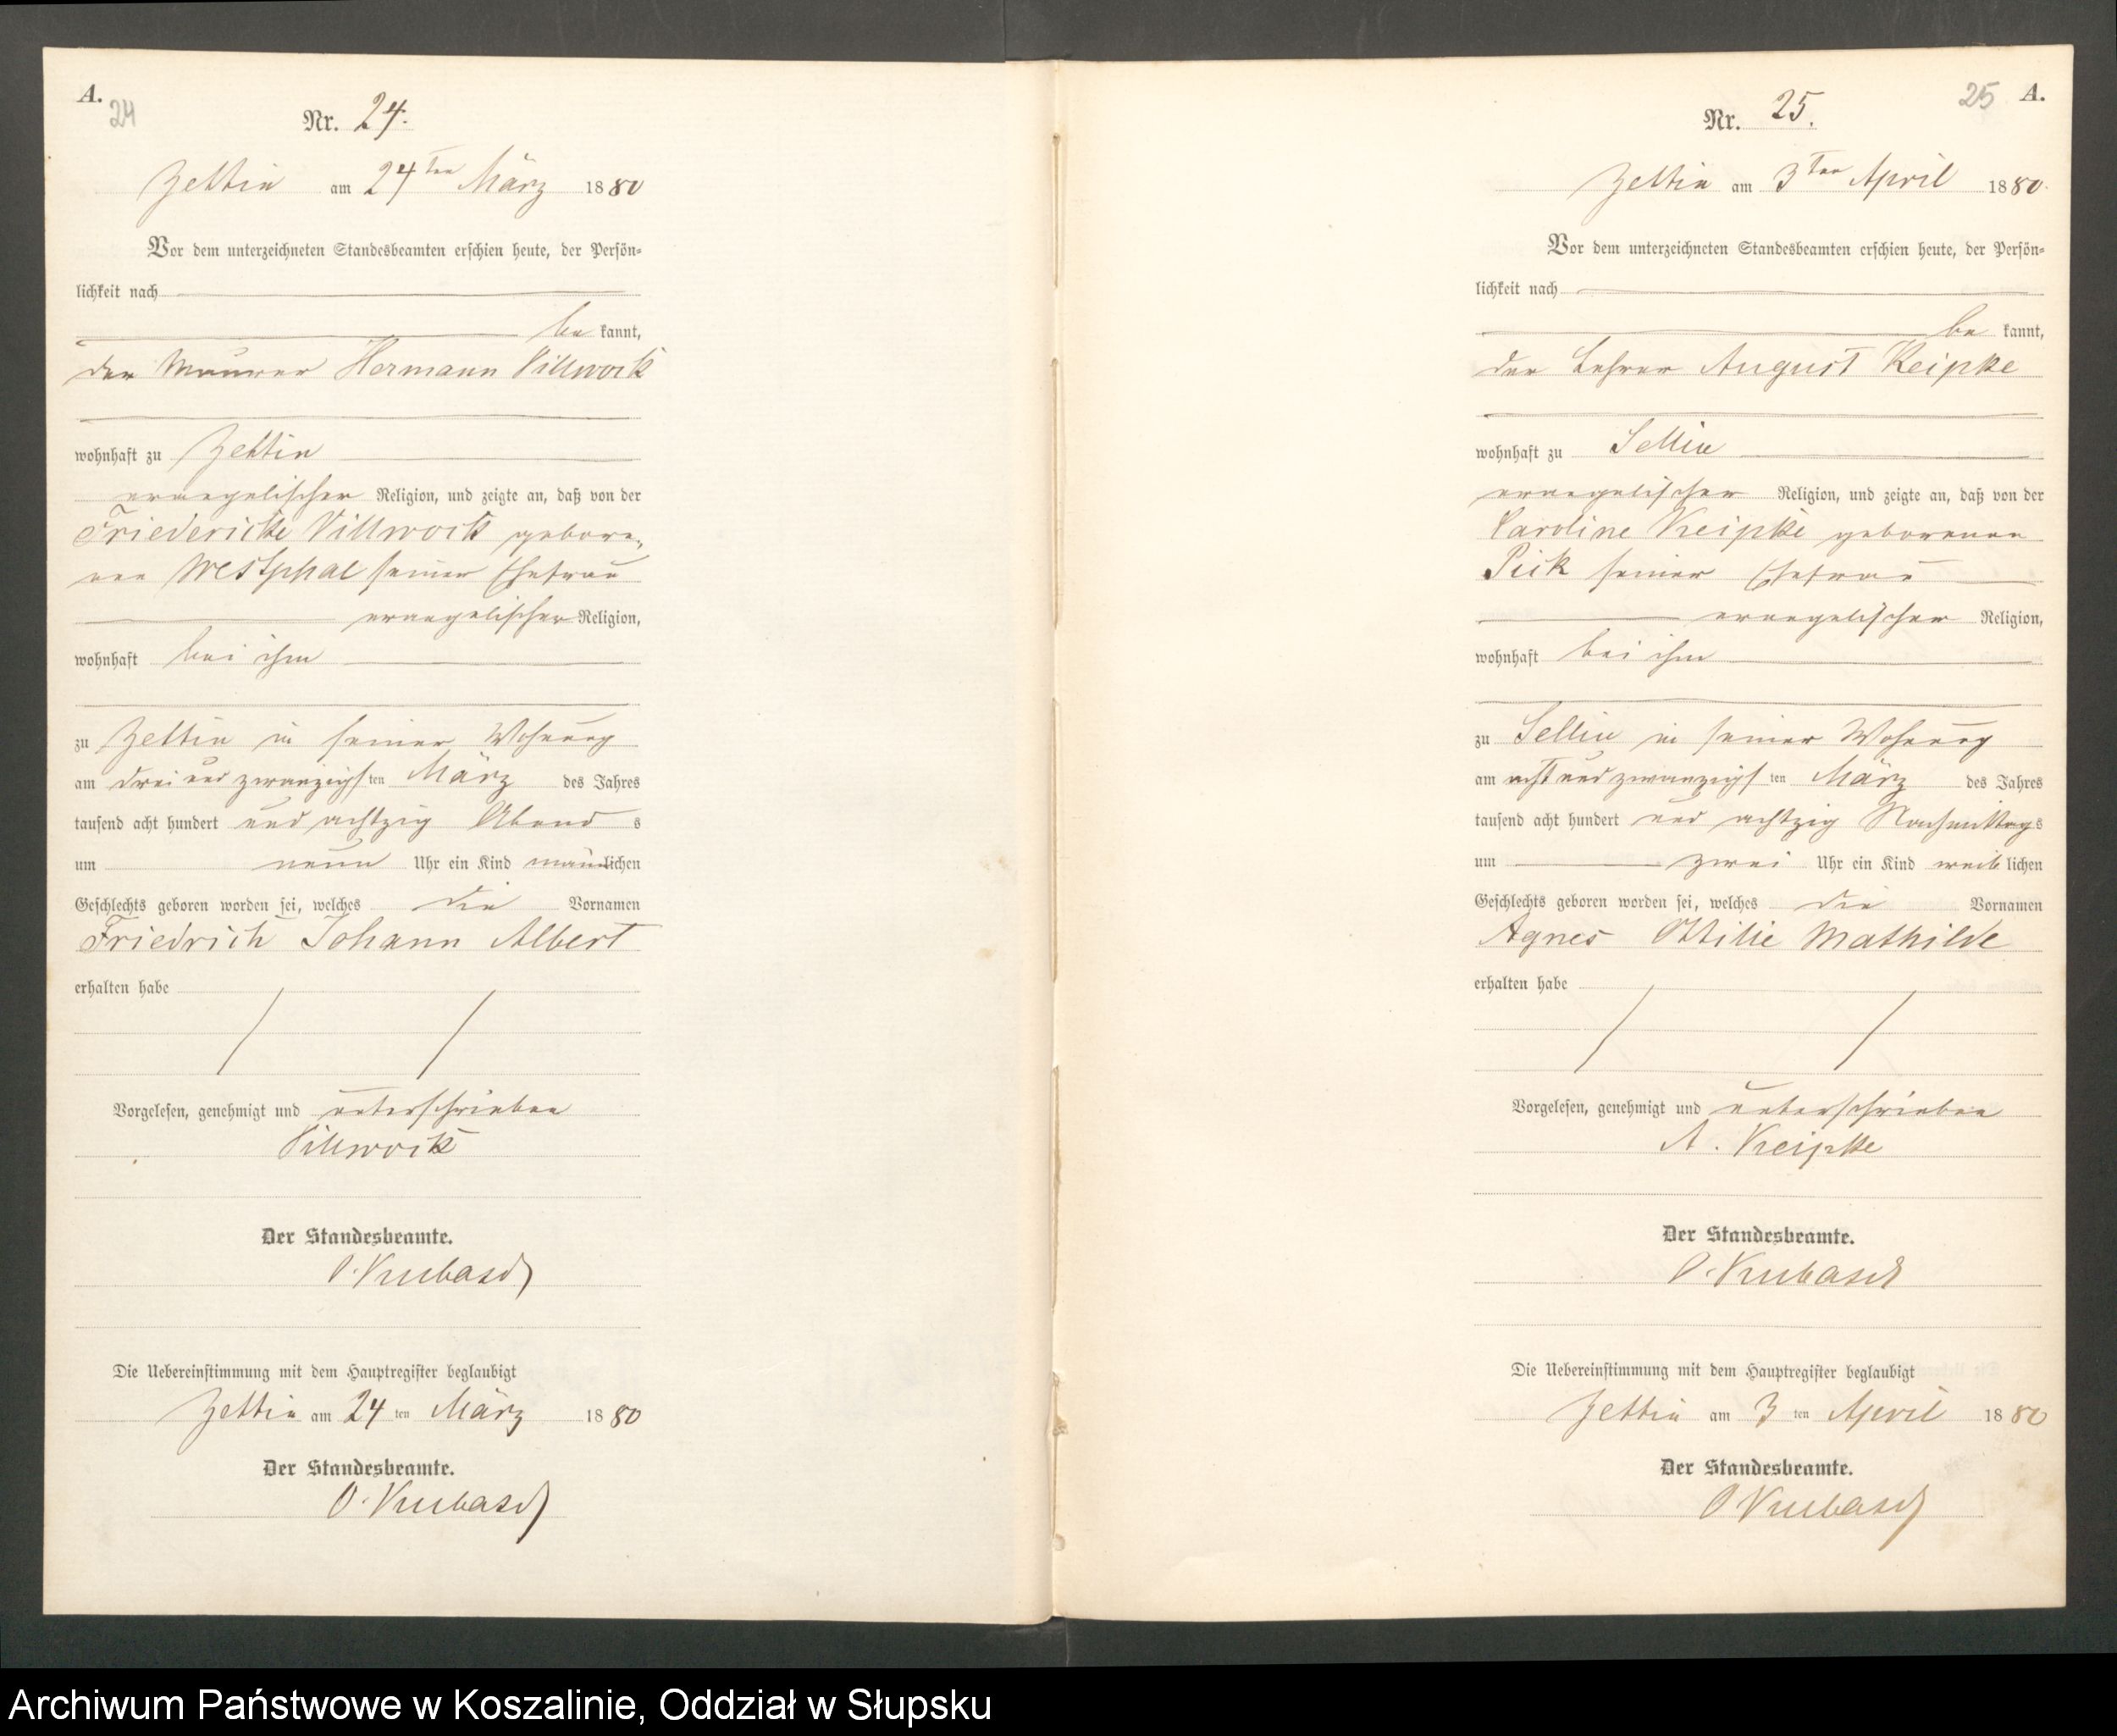 A.
24
Nr. 24.
Zettin am 24ten März 1880
Vor dem unterzeichneten Standesbeamten erschien heute, der Persön-
lichkeit nach
be kannt,
der Maurer Hermann Villwock
wohnhaft zu Zettin
evangelischer Religion, und zeigte an, daß von der
Friedericke Villwock gebore-
nen Westphal seiner Ehefrau
evangelischer Religion,
wohnhaft bei ihm
zu Zettin in seiner Wohnung
am drei und zwanzigsten März des Jahres
tausend acht hundert und achtzig Abends
um neun Uhr ein Kind männlichen
Geschlechts geboren worden sei, welches die Vornamen
Friedrich Johann Albert
erhalten habe
Vorgelesen, genehmigt und unterschrieben
Villwock
Der Standesbeamte.
O. Kubasch
Die Uebereinstimmung mit dem Hauptregister beglaubigt
Zettin am 24 ten März 1880
Der Standesbeamte.
O. Kubasch
25 A.
Nr. 25.
Zettin am 3ten April 1880.
Vor dem unterzeichneten Standesbeamten erschien heute, der Persön-
lichkeit nach
be kannt,
der Lehrer August Keipke
wohnhaft zu Sellin
evangelischer Religion, und zeigte an, daß von der
Caroline Keipke geborenen
Pick seiner Ehefrau
evangelischer Religion,
wohnhaft bei ihm
zu Sellin in seiner Wohnung
am acht und zwanzigsten März des Jahres
tausend acht hundert und achtzig Nachmittags
um zwei Uhr ein Kind weiblichen
Geschlechts geboren worden sei, welches die Vornamen
Agnes Ottilie Mathilde
erhalten habe
Vorgelesen, genehmigt und unterschrieben
A. Keipke
Der Standesbeamte.
O. Kubasch
Die Uebereinstimmung mit dem Hauptregister beglaubigt
Zettin am 3 ten April 1880
Der Standesbeamte.
O Kubasch
Archiwum Państwowe w Koszalinie, Oddział w Słupsku